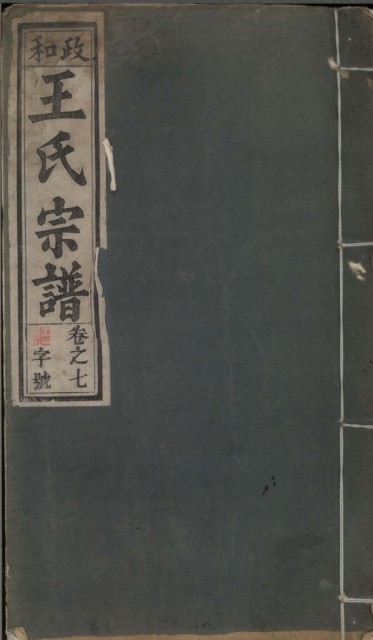 政和
王氏宗譜
卷之七
字號